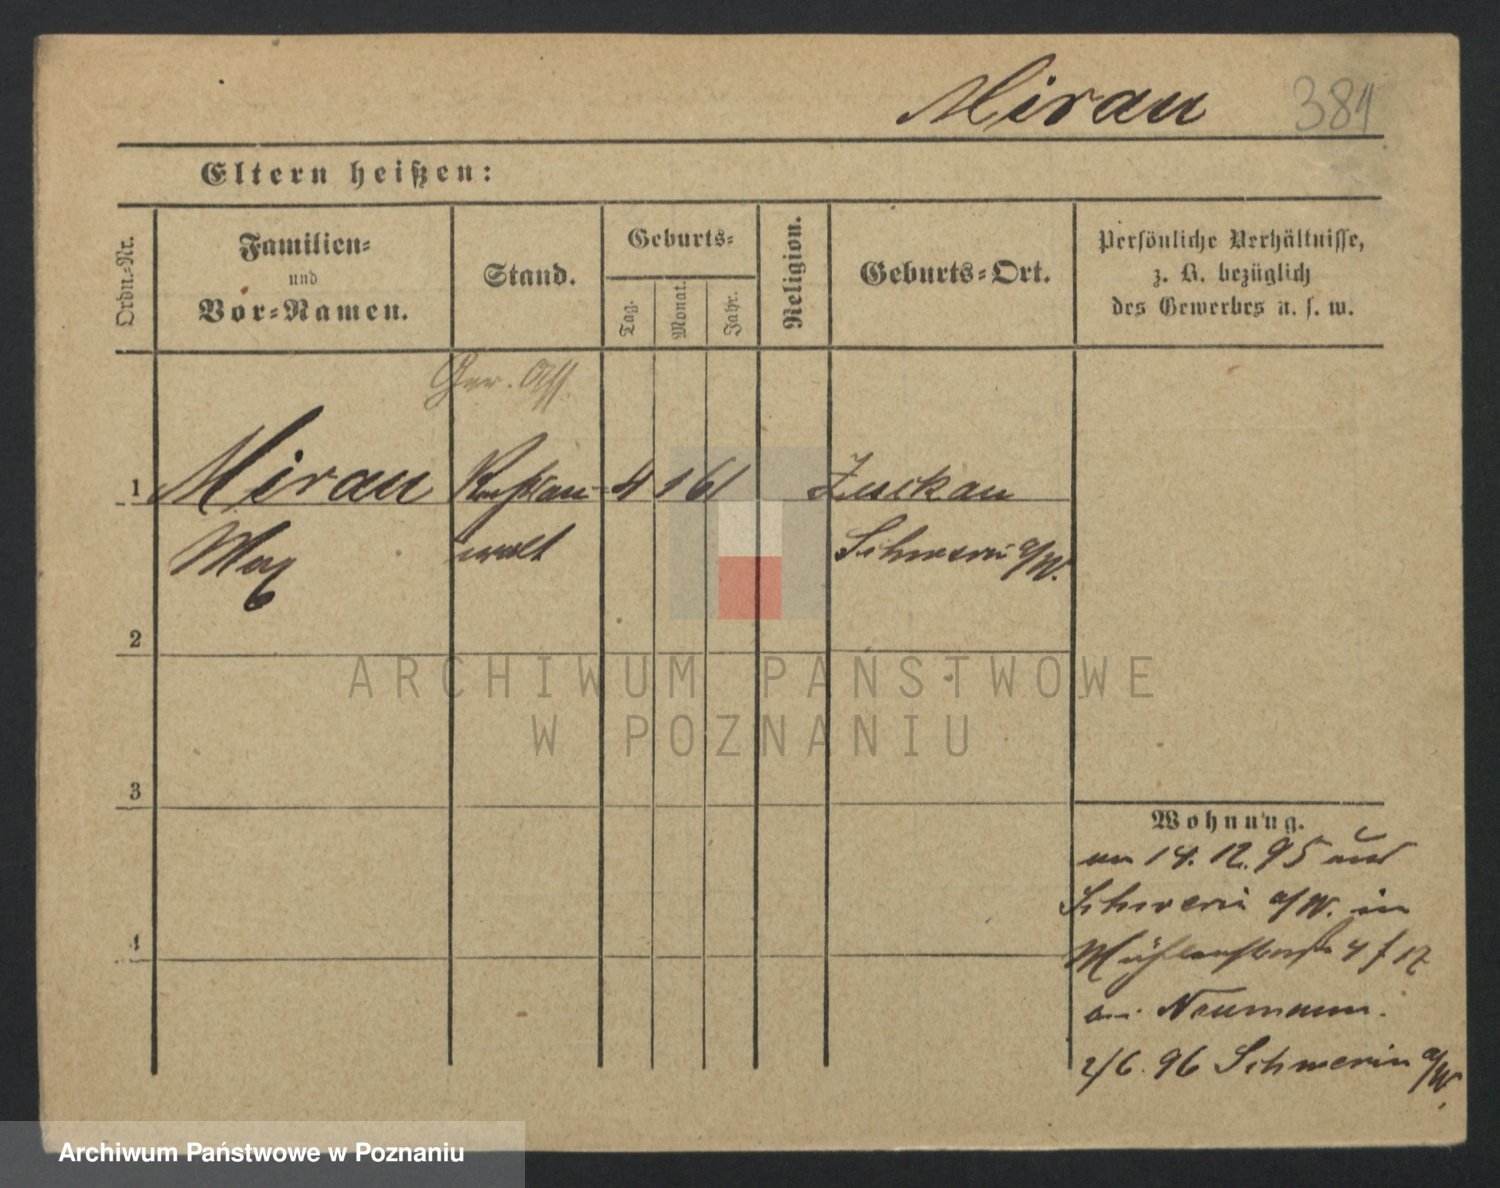 Mirau 381
Eltern heißen:
Ordn.-Nr.
Familien-
und
Vor-Namen.
Stand.
Geburts-
Tag.
Monat.
Jahr.
Religion.
Geburts-Ort.
Persönliche Verhältnisse,
z. B. bezüglich
des Gewerbes u. s. w.
Ger. Ass.
1 Mirau Rechtsan- 4 1 61 Zuckau
Max walt Schwerin a/W.
2
3
4
Wohnung.
am 14. 12. 95 aus
Schwerin a/W. in
Mühlenstraße 4 f 12
Neumann.
2/6. 96 Schwerin a/W.
ARCHIWUM PAŃSTWOWE
W POZNANIU
Archiwum Państwowe w Poznaniu